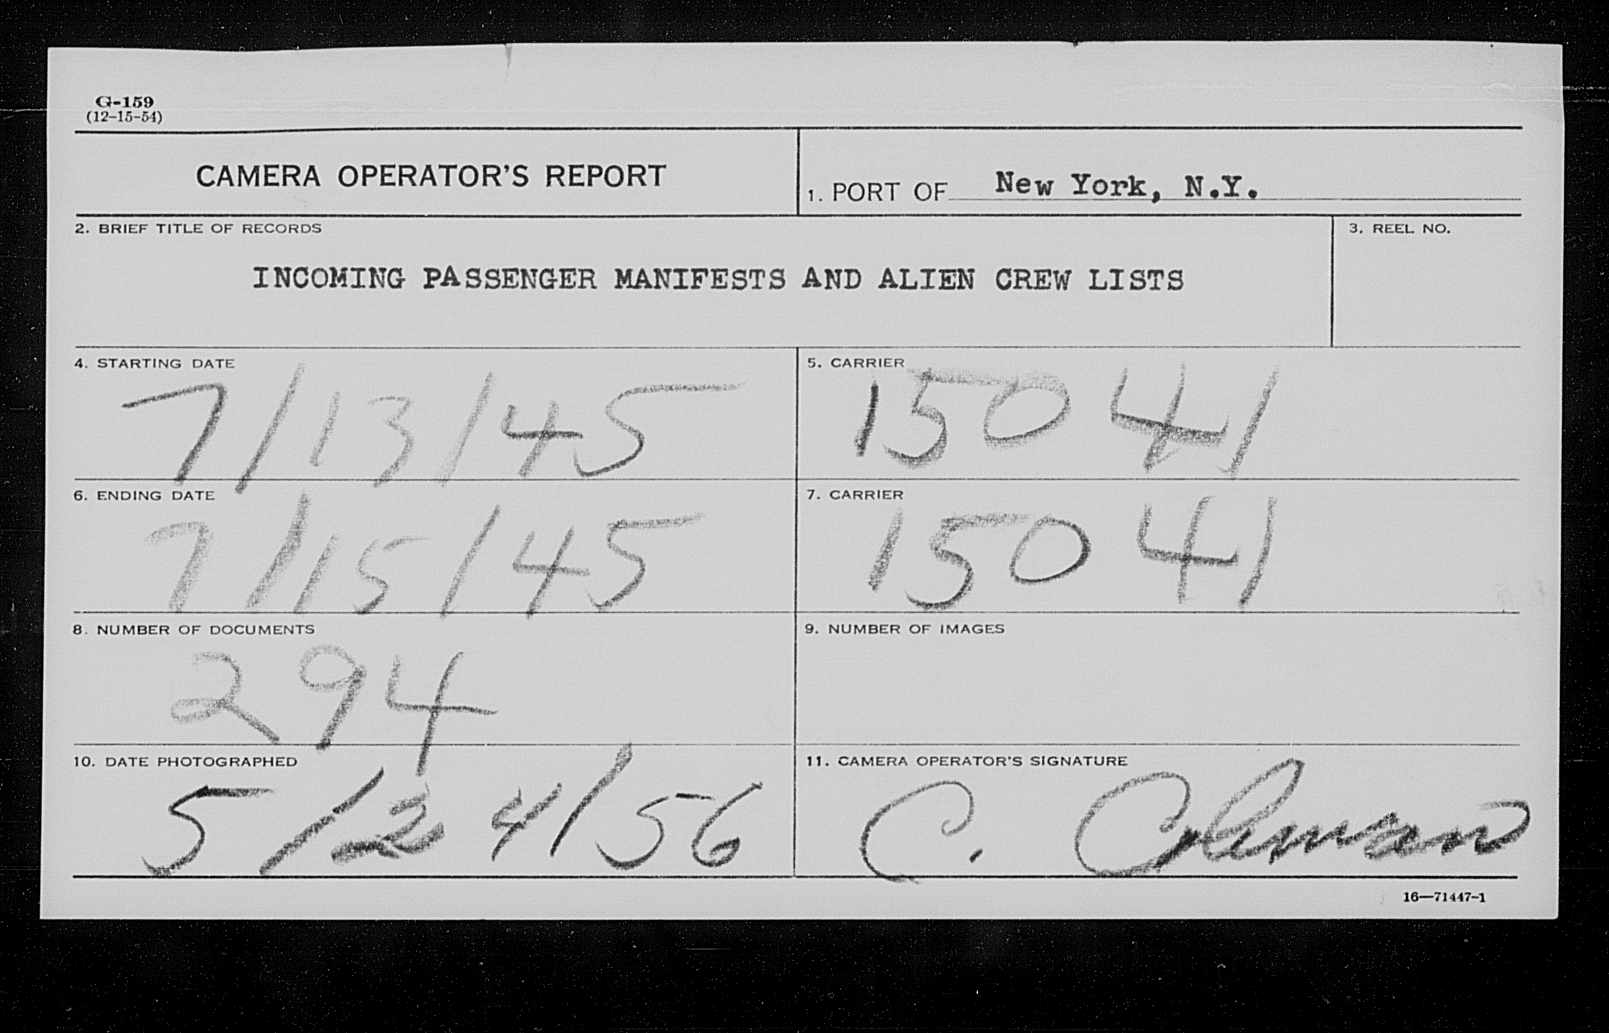 G-159
(12-15-54)
CAMERA OPERATOR'S REPORT
1. PORT OF New York, N.Y.
2. BRIEF TITLE OF RECORDS
INCOMING PASSENGER MANIFESTS AND ALIEN CREW LISTS
3. REEL NO.
4. STARTING DATE
7/13/45
5. CARRIER
15041
6. ENDING DATE
7/15/45
7. CARRIER
15041
8. NUMBER OF DOCUMENTS
294
9. NUMBER OF IMAGES
10. DATE PHOTOGRAPHED
5/24/56
11. CAMERA OPERATOR'S SIGNATURE
C. Coleman
16—71447-1